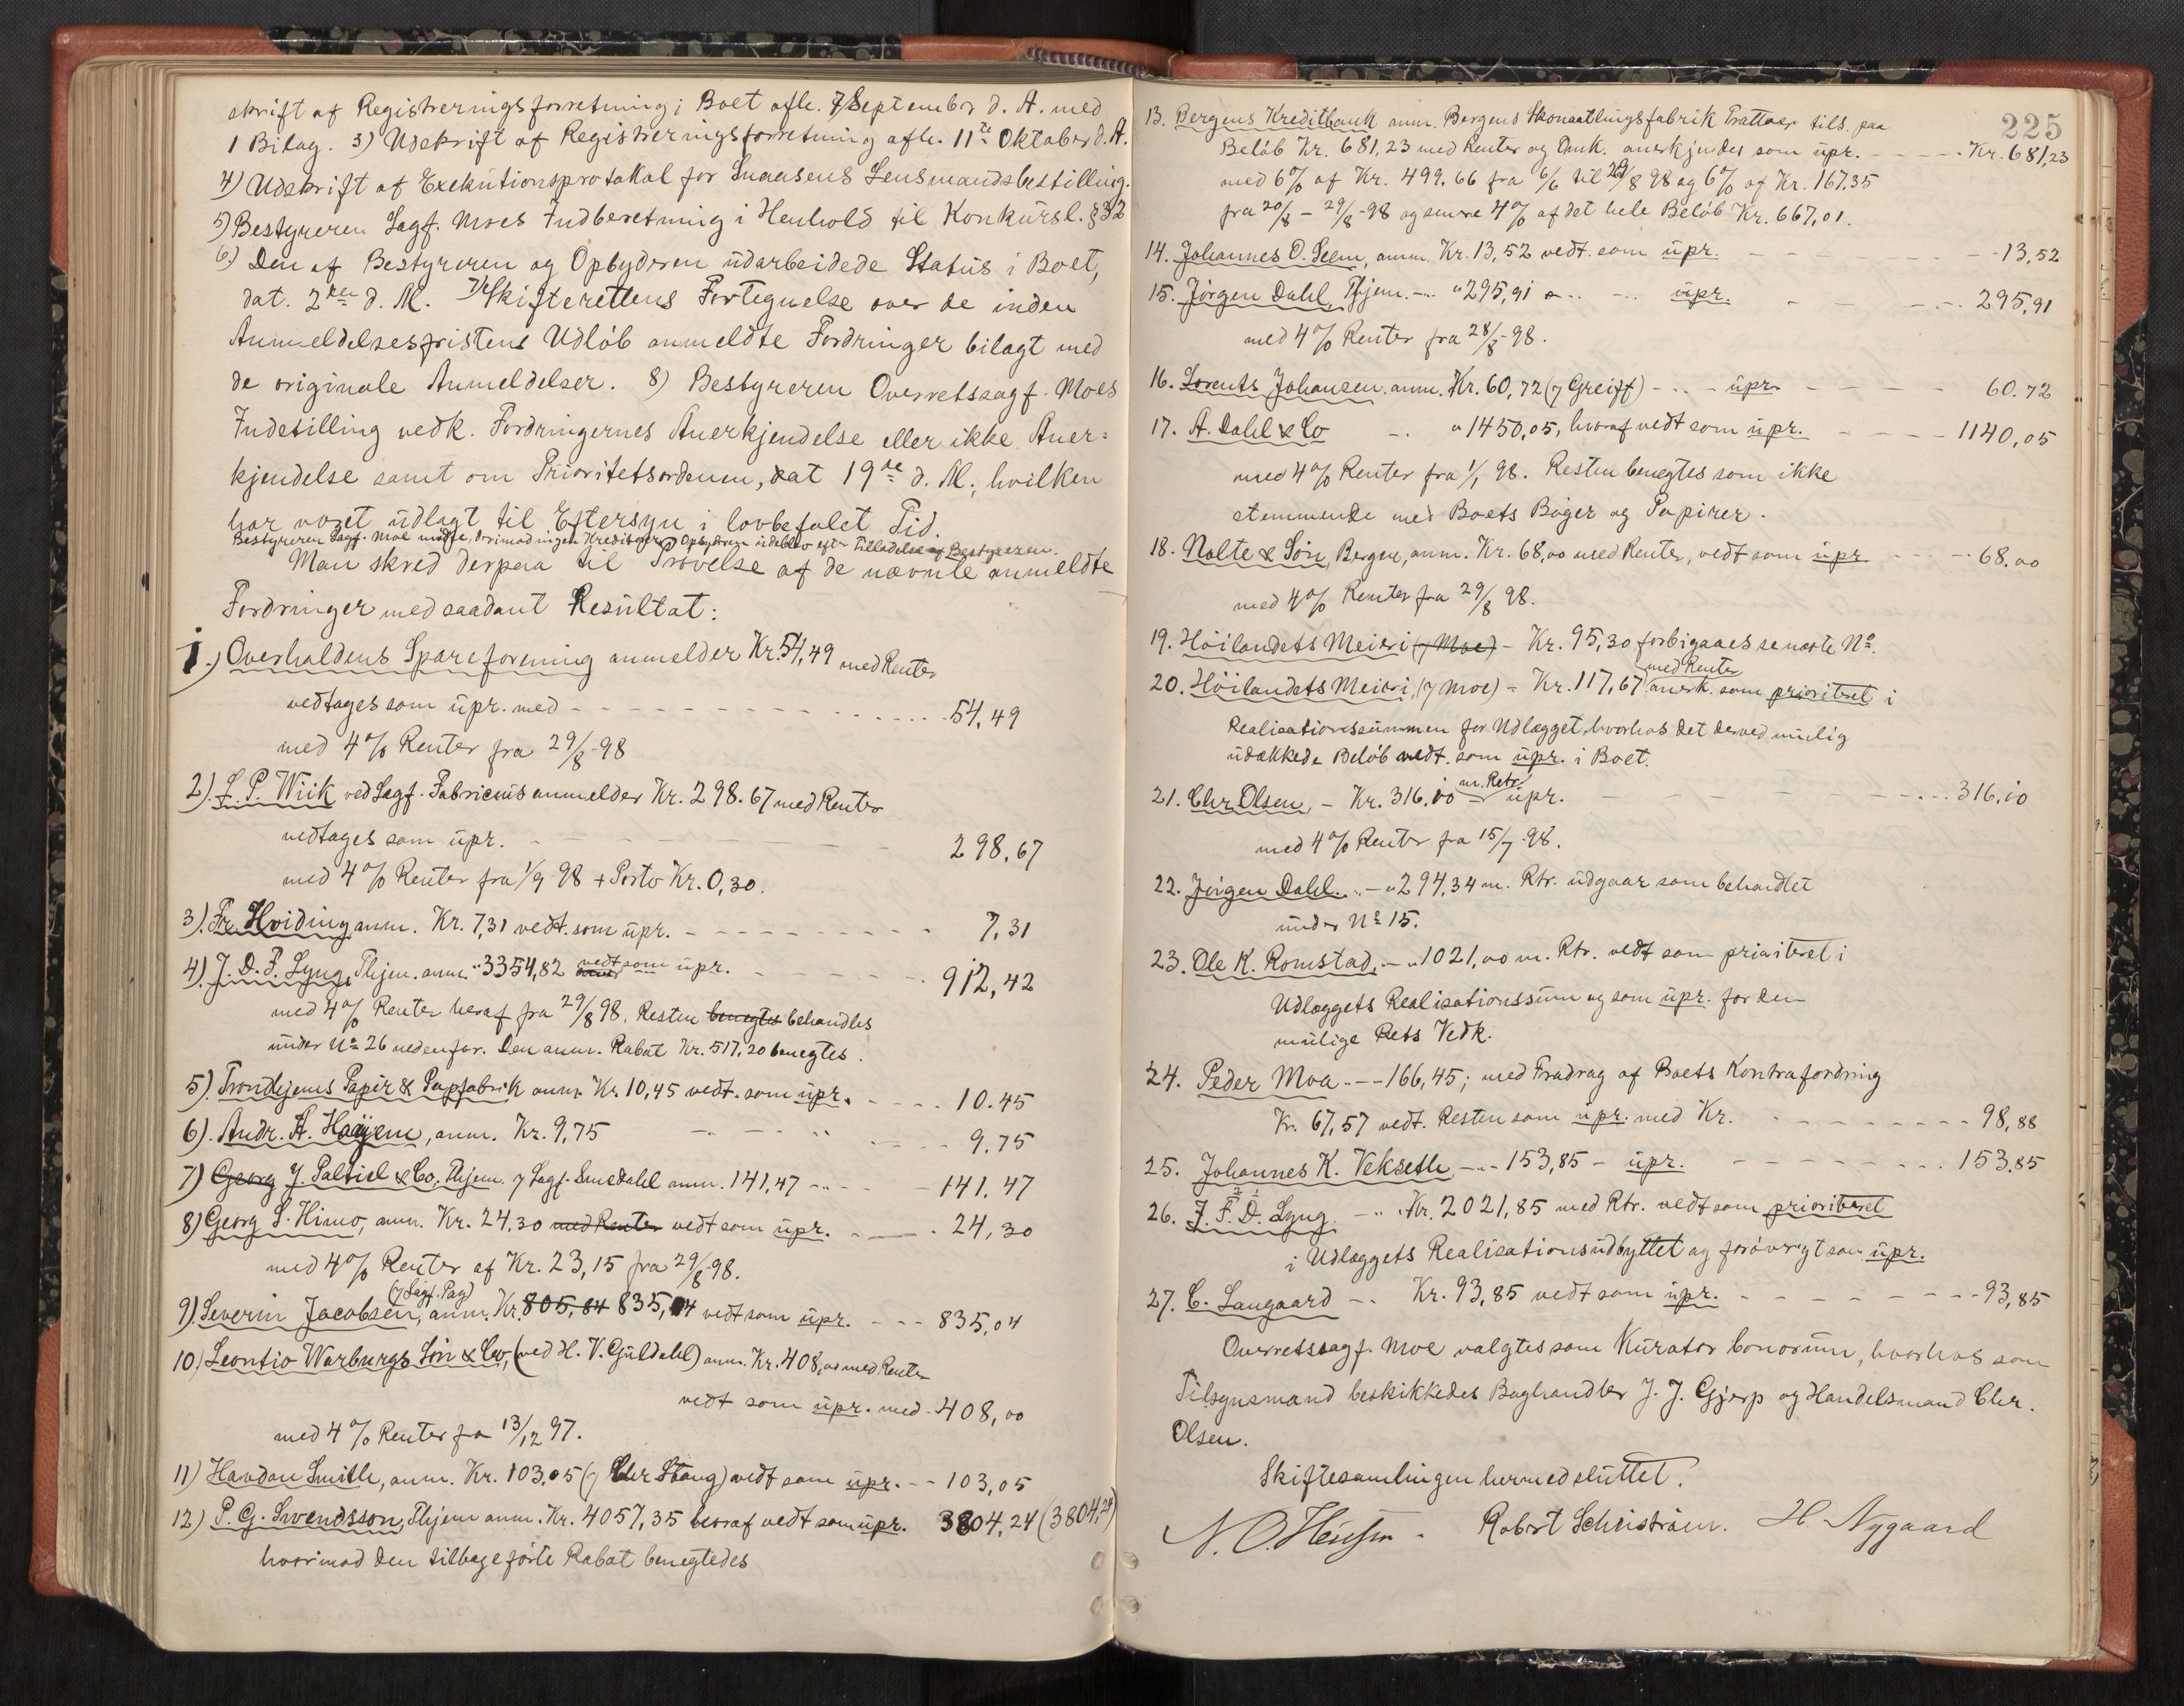 skrift af Registreringsforretning i Boet afh. 7 September d. A. med
1 Bilag. 3) Udskrift af Registreringsforretning afh. 11te Oktober d. A.
4) Udskrift af Exekutionsprotokol for Snaasens Lensmandsbestilling.
5) Bestyreren Sagf. Moes Indberetning i Henhold til Konkursl. § 32
6) Den af Bestyreren og Opbyderen udarbeidede Status i Boet,
dat. 2den d. M. 7) Skifterettens Fortegnelse over de inden
Anmeldelsesfristens Udløb anmeldte Fordringer bilagt med
de originale Anmeldelser. 8) Bestyreren Overretssagf. Moes
Indstilling vedk. Fordringernes Anerkjendelse eller ikke Aner=
kjendelse samt om Prioritetsordenen, dat 19de d. M., hvilken
har været udlagt til Eftersyn i lovbefalet Tid.
Bestyreren Sagf. Moe mødte, derimod ingen Kreditorer. Opbyderen udeblev efter Tilladelse af Bestyreren.
Man skred derpaa til Prøvelse af de nævnte anmeldte
Fordringer med saadant Resultat:
1.) Overhaldens Spareforening anmelder Kr. 54,49 med Renter
vedtages som upr. med - - - 54,49
med 4% Renter fra 29/8-98
2). L. P. Wiik ved Sagf. Fabricius anmelder Kr. 298.67 med Renter
vedtages som upr. - - - 298,67
med 4% Renter fra 1/9-98 + Porto Kr. 0,30.
3). Fr. Hviding anm. Kr. 7,31 vedt. som upr. - - - 7,31
4). J. D. F. Lyng, Thjem. anm. " 3354,82 vedt som upr. - - - 912,42
med 4% Renter heraf fra 29/8 98. Resten benegtes behandles
under No 26 nedenfor. Den anm. Rabat Kr. 517,20 benegtes.
5). Trondhjems Papir & Papfabrik anm. Kr. 10,45 vedt. som upr. - - - 10.45
6). Andr. A. Haajem, anm. Kr. 9,75 - - - 9,75
7) Georg J. Paltiel & Co. Thjem. v/ Sagf. Smedahl anm. 141,47 - - - 141,47
8) Georg S. Himo, anm. Kr. 24,30 med Renter vedt som upr. - - - 24,30
med 4% Renter af Kr. 23,15 fra 29/8-98.
(v/ Sagf. Pay)
9) Severin Jacobsen, anm. Kr. 805,84 835,04 vedt som upr. - - - 835,04
10) Leontio Warburgs Søn & Co, (ved H. V. Guldahl) anm. Kr. 408,00 med Renter
vedt som upr. med - 408,00
med 4% Renter fra 13/12 97.
11) Havdan Smith, anm. Kr. 103,05 (v/ Chr Stang) vedt som upr. - - 103,05
12) P. G. Svendsson, Thjem anm. Kr. 4057,35 hvoraf vedt som upr. 3804,24 (3804,24)
hvorimod den tilbageførte Rabat benegtedes
225
13. Bergens Kreditbank anm. Bergens Skonaatlingsfabrik tils. paa
Beløb Kr. 681,23 med Renter og Omk. anerkjendes som upr. - - - Kr. 681,23
med 6% af Kr. 499.66 fra 6/6 til 29/8 98 og 6% af Kr. 167.35
fra 20/8 - 29/8-98 og senere 4% af det hele Beløb Kr. 667,01.
14. Johannes O. Seem, anm. Kr. 13,52 vedt. som upr. - - - 13,52
15. Jørgen Dahl, Thjem. - " 295,91 - upr. - - - 295,91
med 4% Renter fra 28/8-98.
16. Lorents Johansen anm. Kr. 60,72 (v/ Greiff) - - upr. - - - 60.72
17. A. Dahl & Co - " 1450,05, hvoraf vedt som upr. - - - 1140,05
med 4% Renter fra 1/1 98. Resten benegtes som ikke
stemmende med Boets Bøger og Papirer.
18. Nolte & Søn, Bergen, anm. Kr. 68,00 med Renter, vedt som upr - - - 68.00
med 4% Renter fra 29/8 98.
19. Høilandets Meieri (v/ Moe) - Kr. 95,30 forbigaaes se næste No.
20. Høilandets Meieri, (v/ Moe) - Kr. 117,67 med Renter anerk. som prioriteret i
Realisationssummen for Udlægget, hvorhos det derved mulig
udækkede Beløb vedt. som upr. i Boet.
21. Chr. Olsen, - Kr. 316.10 m. Rtr. upr. - - - 316,10
med 4% Renter fra 15/7-98.
22. Jørgen Dahl. - " 294,34 m. Rtr. udgaar som behandlet
under No 15.
23. Ole K. Romstad, - " 1021,00 m. Rtr. vedt som prioriteret i
Udlæggets Realisationssum og som upr. for den
mulige Rests Vedk.
24. Peder Moa - - 166,45; med Fradrag af Boets Kontrafordring
Kr. 67,57 vedt. Resten som upr. med Kr. - - - 98,88
25. Johannes K. Vekseth - - 153,85 - upr. - - - 153,85
26. J. F. D. Lyng. - Kr. 2021,85 med Rtr. vedt som prioriteret
i Udlæggets Realisationsudbyttet og forøvrigt som upr.
27. C. Langaard - Kr. 93,85 vedt som upr. - - - 93,85
Overretssagf. Moe valgtes som Kurator bonorum, hvorhos som
Tilsynsmand beskikkedes Boghandler J. J. Gjerp og Handelsmand Chr.
Olsen.
Skiftesamlingen hermed sluttet.
Robert Schiström. H. Nygaard